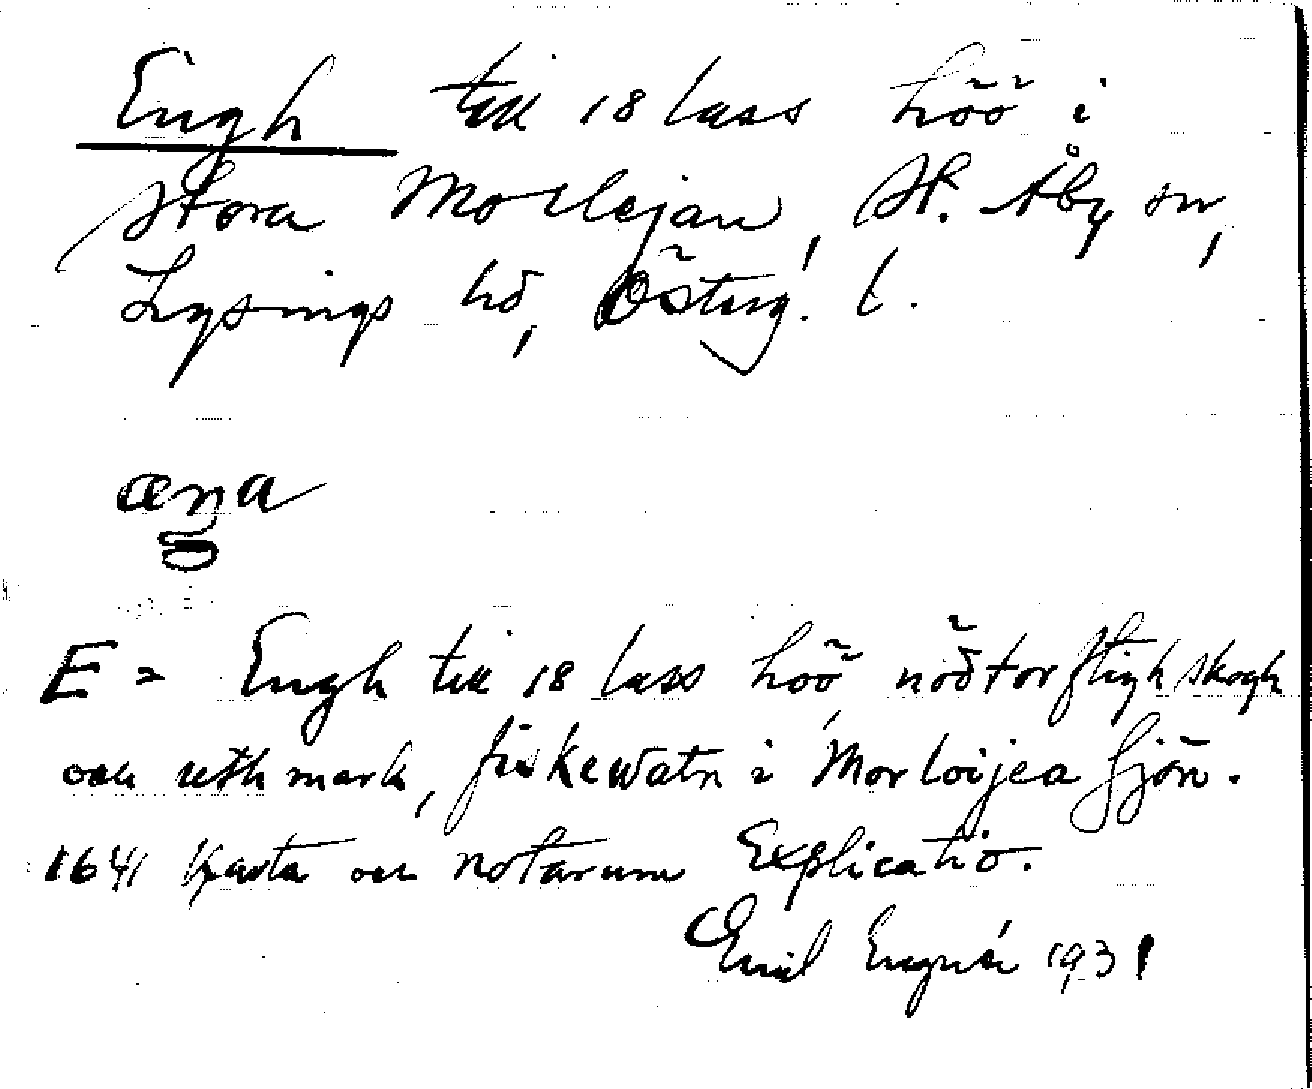 Engh till 18 lass höö i
Stora Morlejan, St. Åby sn,
Lysings hd, Österg. l.
æŋa
E = Engh till 18 lass höö, nödtorftigh skogh
och uthmark, fiskewatn i Morloijea siön.
1641 Karta och notarum Explicatio.
Emil 1931